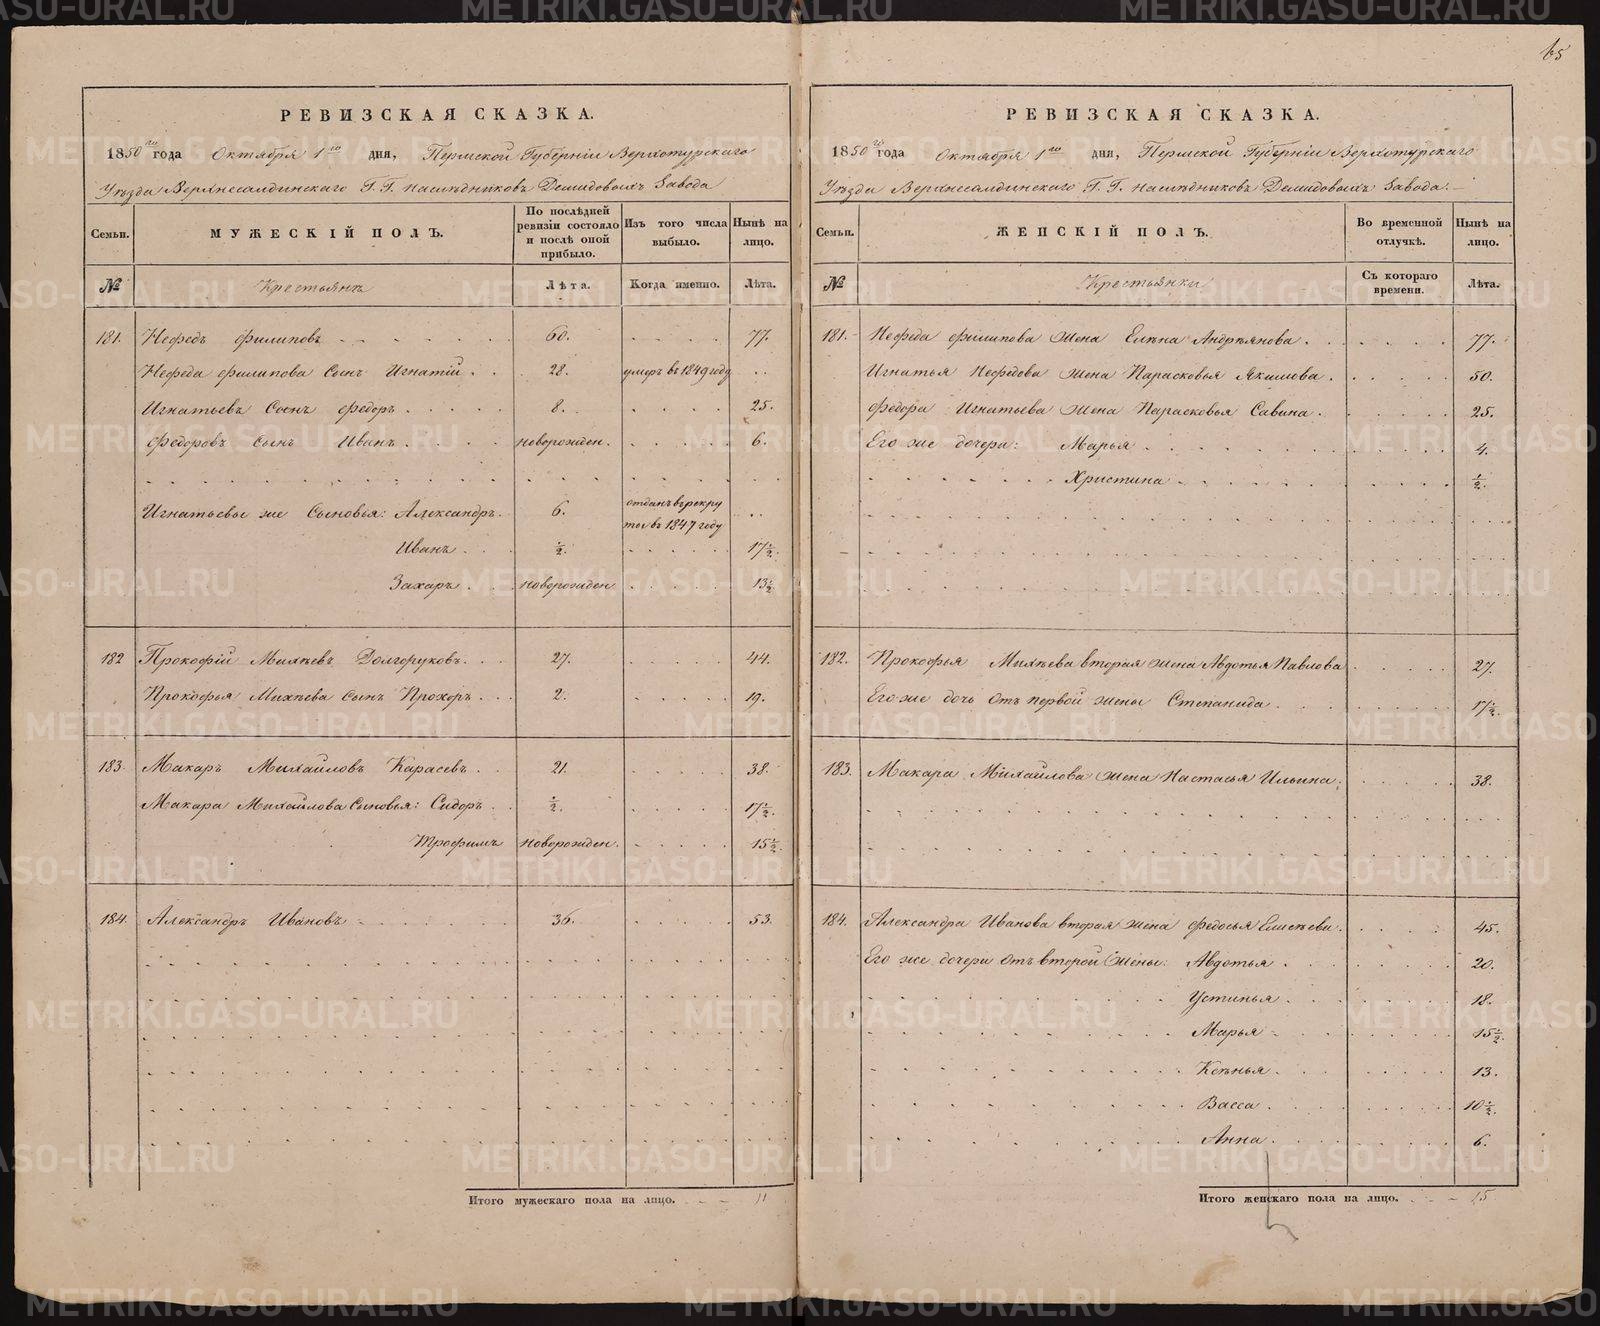 65
РЕВИЗСКАЯ СКАЗКА.
1850го года Октября 1го дня, Пермской Губерніи Верхотурскаго
Уѣзда Верхнесалдинскаго Г. Г. Наслѣдниковъ Демидовыхъ Завода
Семьи. МУЖЕСКІЙ ПОЛЪ. По послѣдней ревизіи состояло и послѣ оной прибыло. Изъ того числа выбыло. Нынѣ на лицо.
№ Крестьянъ Лѣта. Когда именно. Лѣта.
181. Нефедъ Филиповъ 60. 77.
Нефеда Филипова Сынъ Игнатій 28. умеръ въ 1849 году
Игнатьевъ Сынъ Федоръ 8. 25.
Федоровъ Сынъ Иванъ новорожден. 6.
Игнатьевы же Сыновья: Александръ 6. отданъ въ рекру
ты въ 1847 году
Иванъ ½. 17½.
Захаръ новорожден 13½
182 Прокофій Михѣевъ Долгоруковъ 27. 44.
Прокофья Михѣева Сынъ Прохоръ 2. 19.
183. Макаръ Михайловъ Карасевъ 21. 38.
Макара Михайлова Сыновья: Сидоръ ½. 17½.
Трофимъ новорожден. 15½.
184. Александръ Ивановъ 36. 53.
Итого мужескаго пола на лицо. 11
РЕВИЗСКАЯ СКАЗКА.
1850го года Октября 1го дня, Пермской Губерніи Верхотурскаго
Уѣзда Верхнесалдинскаго Г. Г. Наслѣдниковъ Демидовыхъ Завода.
Семьи. ЖЕНСКІЙ ПОЛЪ. Во временной отлучкѣ. Нынѣ на лицо.
№ Крестьянки Съ котораго времени. Лѣта.
181. Нефеда Филипова Жена Елена Андреянова 77.
Игнатья Нефедова Жена Парасковья Якимова 50.
Федора Игнатьева Жена Парасковья Савина 25.
Его же дочери: Марья 4.
Христина ½.
182. Прокофья Михѣева вторая Жена Авдотья Павлова 27.
Его же дочь Отъ первой жены Степанида 17½.
183. Макара Михайлова Жена Настасья Ильина 38.
184. Александра Иванова вторая Жена Федосья Елисѣева 45.
Его же дочери Отъ второй Жены: Авдотья 20.
Устинья 18.
Марья 15½.
Ксенья 13.
Васса 10½.
Анна 6.
Итого женскаго пола на лицо. 15
METRIKI.GASO-URAL.RU